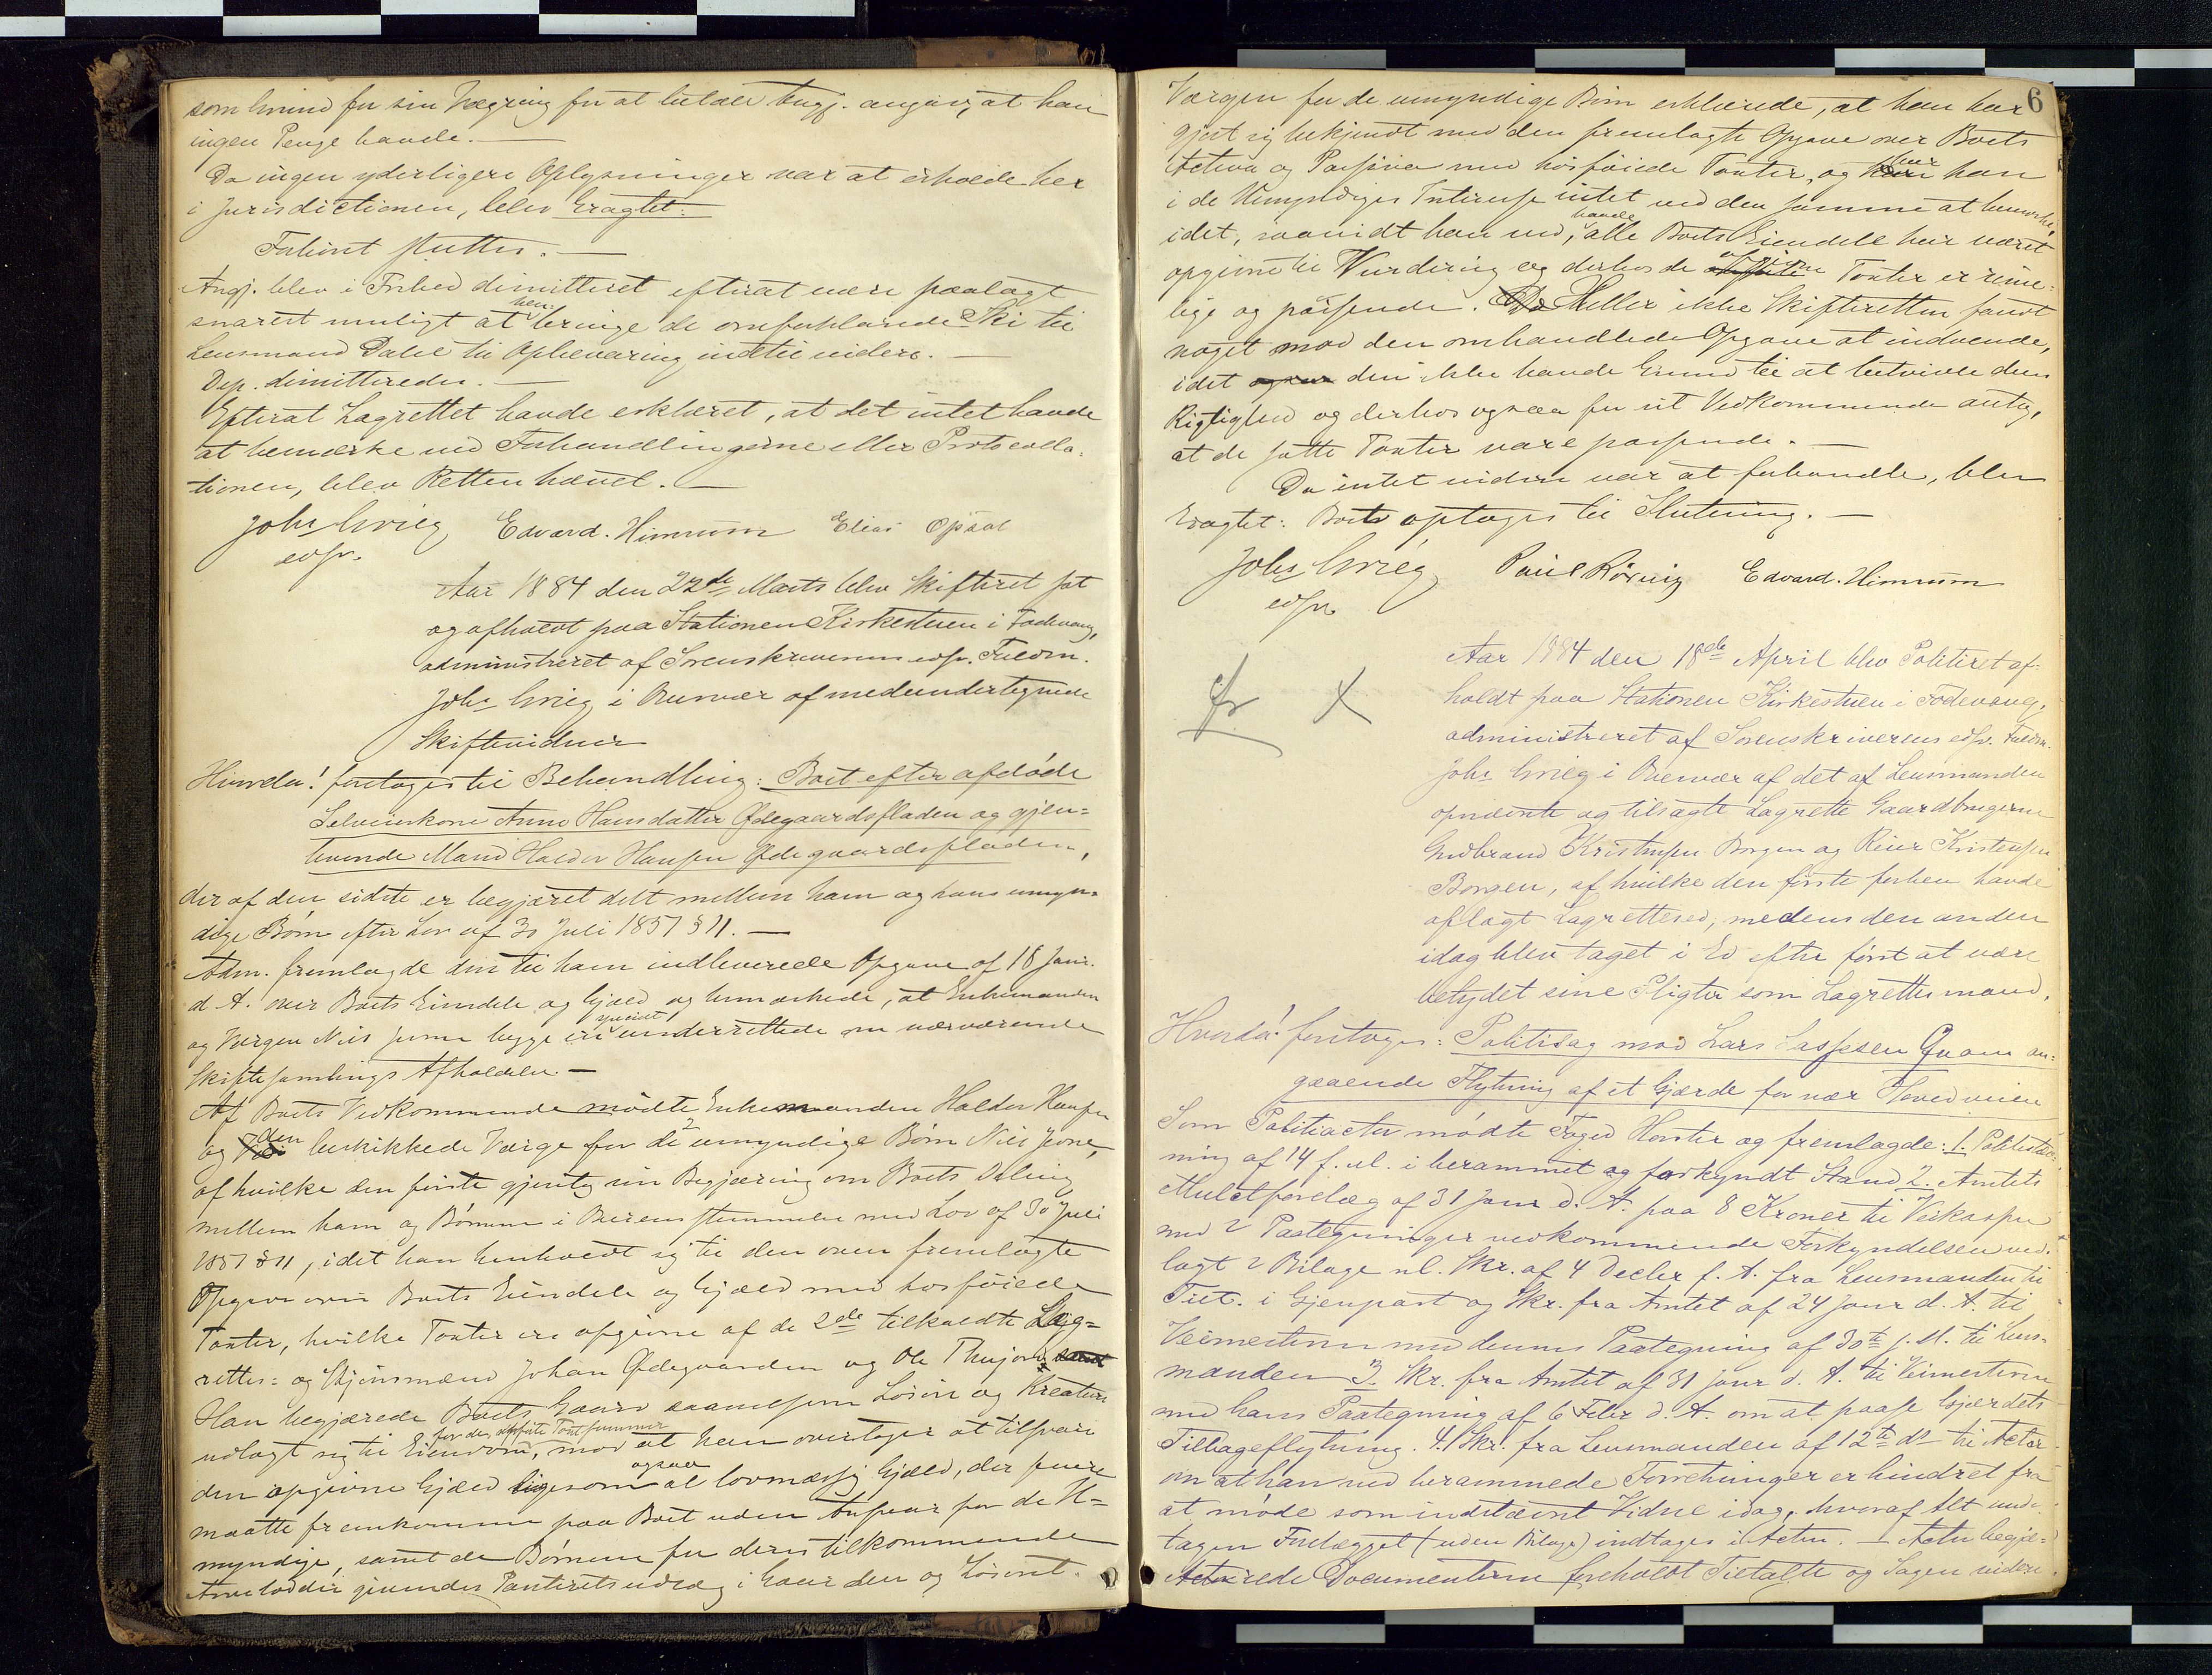 som Grund for sin Vægring for at betale Angj. angav, at han
ingen Penge havde.
Da ingen yderligere Oplysninger var at erholde her
i Jurisdictionen, blev Eragtet:
Forhøret sluttes.
Angj. blev i Frihed dimitteret efterat være paalagt
snarest muligt at henbringe de omforklarede Ski til
Lensmand Dahl til Opbevaring indtil videre.
Dep. dimitteredes.
Efterat Lagrettet havde erklæret, at det intet havde
at bemærke ved Forhandlingerne eller Protocolla-
tionen, blev Retten hævet.
Johs Grieg Edvard. Himrum Elias Opsal
edsv.
Aar 1884 den 22de Marts blev Skifteret sat
og afholdt paa Stationen Kirkestuen i Fodvang,
administreret af Sorenskriverens edsv. Fuldm.
Johs Grieg i Overvær af medundertegnede
Skiftevidner
Hvorda! foretoges til Behandling: Boet efter afdøde
Selveierkone Anne Hansdatter Ødegaardsfladen og gjen-
levende Mand Haldor Hansen Ødegaardsfladen,
der af den sidste er begjæret delt mellem ham og hans umyn-
dige Børn efter Lov af 30 Juli 1851 § 11.
Adm. fremlagde den til ham indleverede Opgave af 18 Janr.
d. A. over Boets Eiendele og Gjæld og bemærkede, at Enkemanden
og Værgen Nils begge ere specielt underrettede om nærværende
Skiftesamlings Afholdelse.
Af Boets Vedkommende mødte Enkemanden Haldor Hansen
og den beskikkede Værge for de 2 umyndige Børn Nils
af hvilke den første gjentog sin Begjæring om Boets Deling
mellem ham og Børnene i Overensstemmelse med Lov af 30 Juli
1851 § 11, idet han henholdt sig til den oven fremlagte
Opgave over Boets Eiendele og Gjæld med hosføiede
Taxter, hvilke Taxter ere opgivne af de 2de tilkaldte Lag-
rettes- og Skjønsmænd Johan Ødegaarden og Ole
Han begjærede Boets Gaard saavelsom Løsøre og Kreature
udlagt sig til Eiendom, for de ansatte Taxtsummer mod at han overtager at tilsvare
den opgivne Gjæld ligesom ogsaa al lovmæssig Gjæld, der senere
maatte fremkomme paa Boet uden Ansvar for de U-
myndige, samt de Børnene for deres tilkommende
Arvelodder givendes Panteretsudlæg i Gaarden og Løsøret.
6
Værgen for de umyndige Børn erklærede, at han har
gjort sig bekjendt med den fremlagte Opgave over Boets
Activa og Passiva med hosføiede Taxter, og har han
i de Umyndiges Interesse intet ved den samme at bemærke,
idet, saavidt han ved, alle Boets havde Eiendele har været
opgivne til Vurdering og derhos de Taxter er rime-
lige og passende. Heller ikke Skifteretten fandt
noget mod den omhandlede Opgave at indvende,
idet den ikke havde Grund til at betvivle dens
Rigtighed og derhos ogsaa for sit Vedkommende antog,
at de satte Taxter vare passende.
Da intet videre var at forhandle, blev
Eragtet: Boet optages til Slutning.
Johs Grieg Paul Røsvig Edvard. Himrum
edsv.
Aar 1884 den 18de April blev Politiret af-
holdt paa Stationen Kirkestuen i Fodevang,
administreret af Sorenskriverens edsv. Fuldm.
Johs Grieg i Overvær af det af Lensmanden
opnævnte og tilsagte Lagrette Gaardbrugerne
Gudbrand Kristensen Borgen og Reier Kristensen
Borgen, af hvilke den første forhen havde
aflagt Lagrettesed, medens den anden
idag blev taget i Ed efter først at være
betydet sine Pligter som Lagrettesmand,
Hvorda! foretoges: Politisag mod Lars Lassesen Qvam an-
gaaende Flytning af et Gjærde for nær Hovedveien
Som Politiactor mødte Foged Horster og fremlagde: 1. Politistæv-
ning af 14 f. M. i berammet og forkyndt Stand 2. Amtets
Mulctforelæg af 31 Janr d. A. paa 8 Kroner til Veikassen
med 2 Paategninger vedkommende Forkyndelsen ved-
lagt 2 Bilage nl. Skr. af 4 Decbr f. A. fra Lensmanden til
Tilt. i Gjenpart og Skr. fra Amtet af 24 Janr d. A. til
Veimesteren med dennes Paategning af 30te s. M. til Lens-
manden 3. Skr. fra Amtet af 31 Janr d. A. til Veimesteren
med hans Paategning af 6 Febr d. A. om at paase Gjærdets
Tilbageflytning. 4. Skr. fra Lensmanden af 12te ds til Actor
om at han ved berammede Forretninger er hindret fra
at møde som indstævnt Vidne idag, hvoraf Alt und-
tagen Forelægget (uden Bilage) indtages i Acten. Actor begjæ-
rede Documenterne foreholdt Tiltalte og Sagen videre